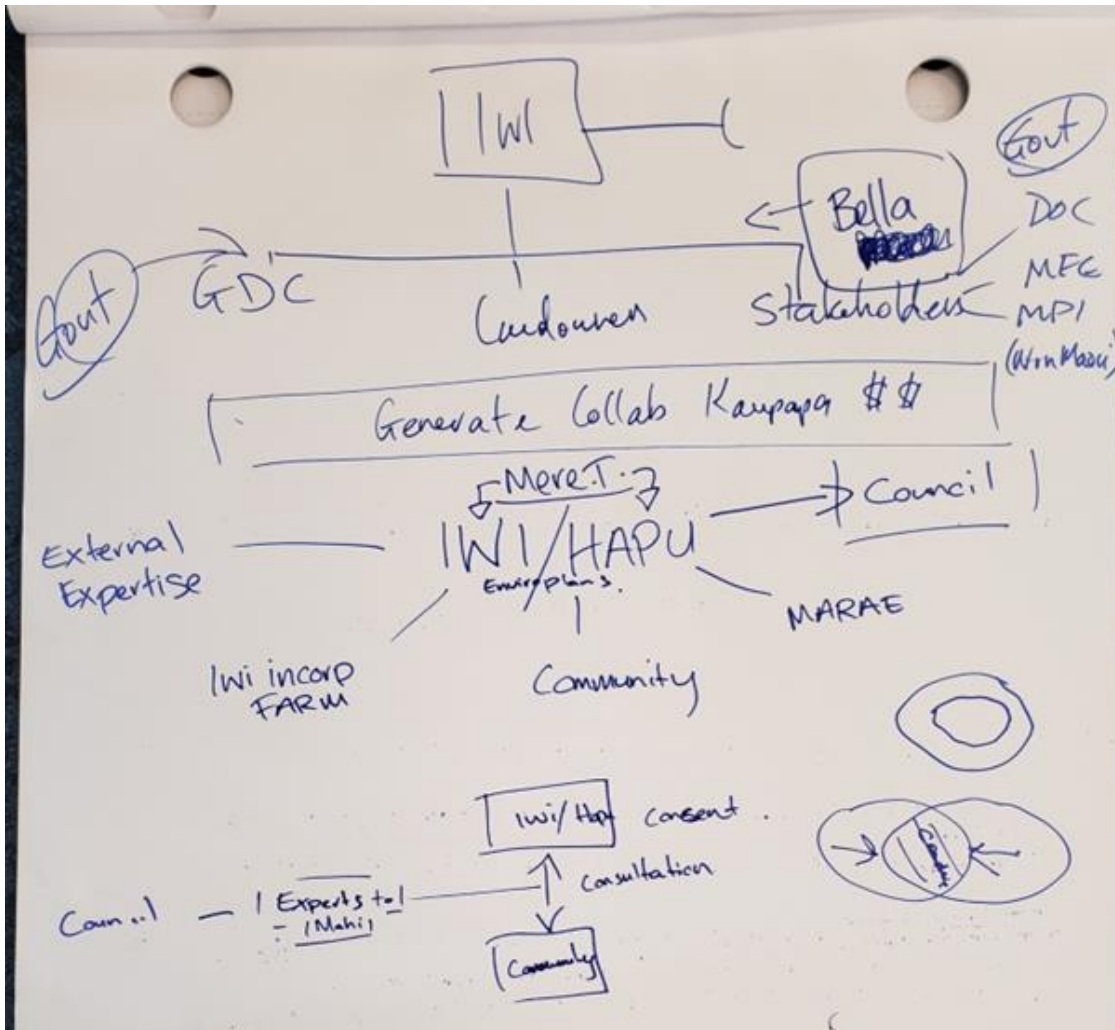 IWI
Govt
Bella
DOC
MFE
MPI
Govt
GDC
Landowner
Stakeholders
Generate Collab Kaupapa $$
Mere.T.
Council
External
Expertise
IWI/HAPU
Enviroplans.
MARAE
Iwi incorp
FARM
Community
Iwi/Hapu consent.
consultation
Council
Experts to
(Mahi)
Community